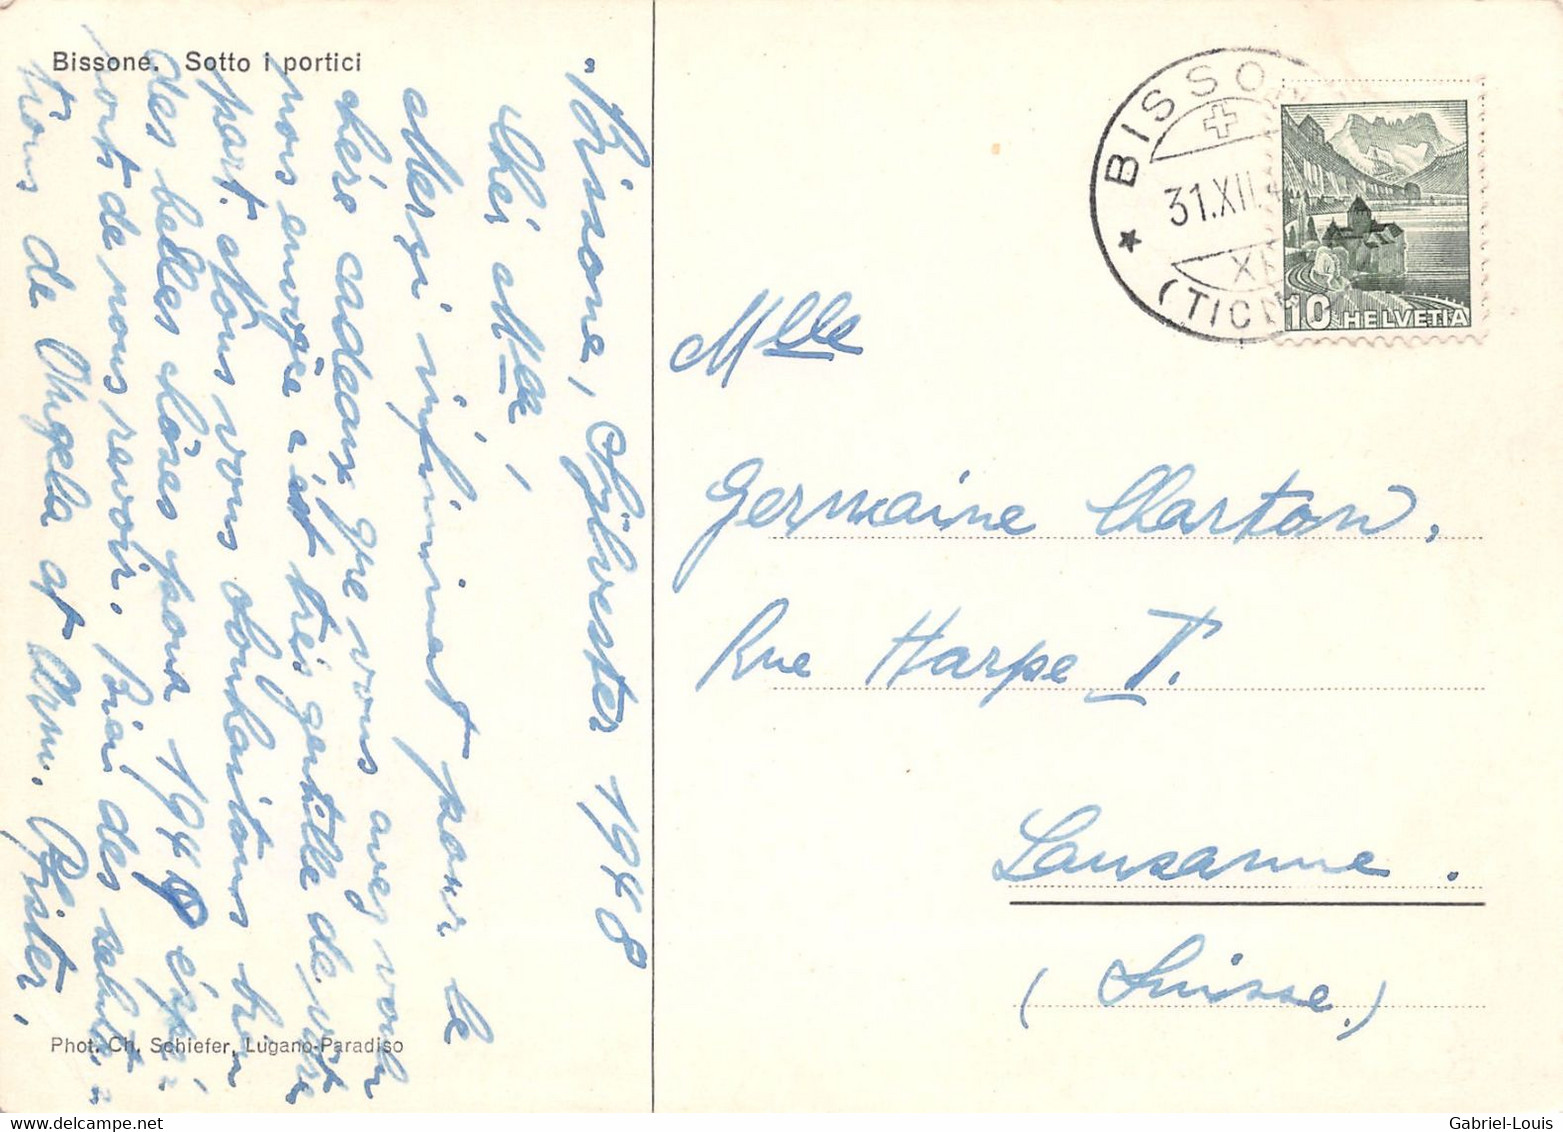 Bissone. Sotto i portici
Bissone, Sylvester 1948
Chei Ma,
Merzi infiniment pour le
chère cadeaux que vous avez voulu
nous envoyée c'est très gentille de votre
part. Nous vous souhaitons bien
des belles choses pour 1949 espé-
rons de nous revoir. Bien des saluta-
tions de Angela et Arm. Pfister.
Phot. Ch. Schiefer, Lugano-Paradiso
BISSON
31.XII.
XI
(TICN
10 HELVETIA
Mlle
Germaine Charton,
Rue Harpe I.
Lausanne.
(Suisse.)
Gabriel-Louis